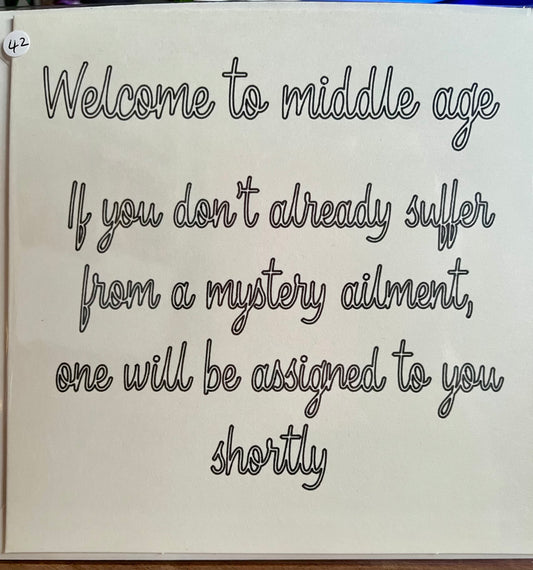 42
Welcome to middle age
If you don't already suffer
from a mystery ailment,
one will be assigned to you
shortly